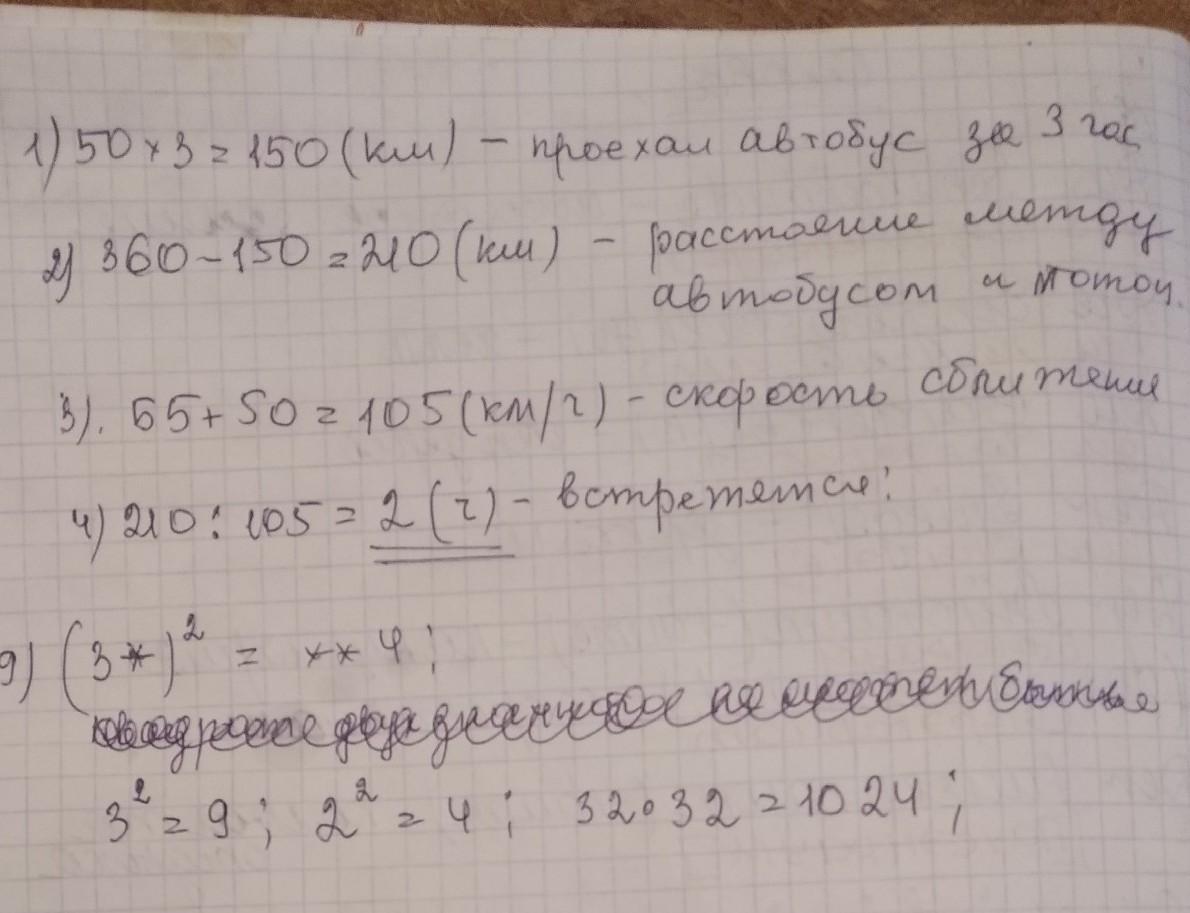 1) 50 × 3 = 150 (км) – проехал автобус за 3 час
2) 360 – 150 = 210 (км) – расстояние между
автобусом и мотоц.
3). 55 + 50 = 105 (км/ч) – скорость сближения
4) 210 : 105 = 2 (ч) – встретятся;
9) (3*)² = **4;
3² = 9; 2² = 4; 32 · 32 = 1024;